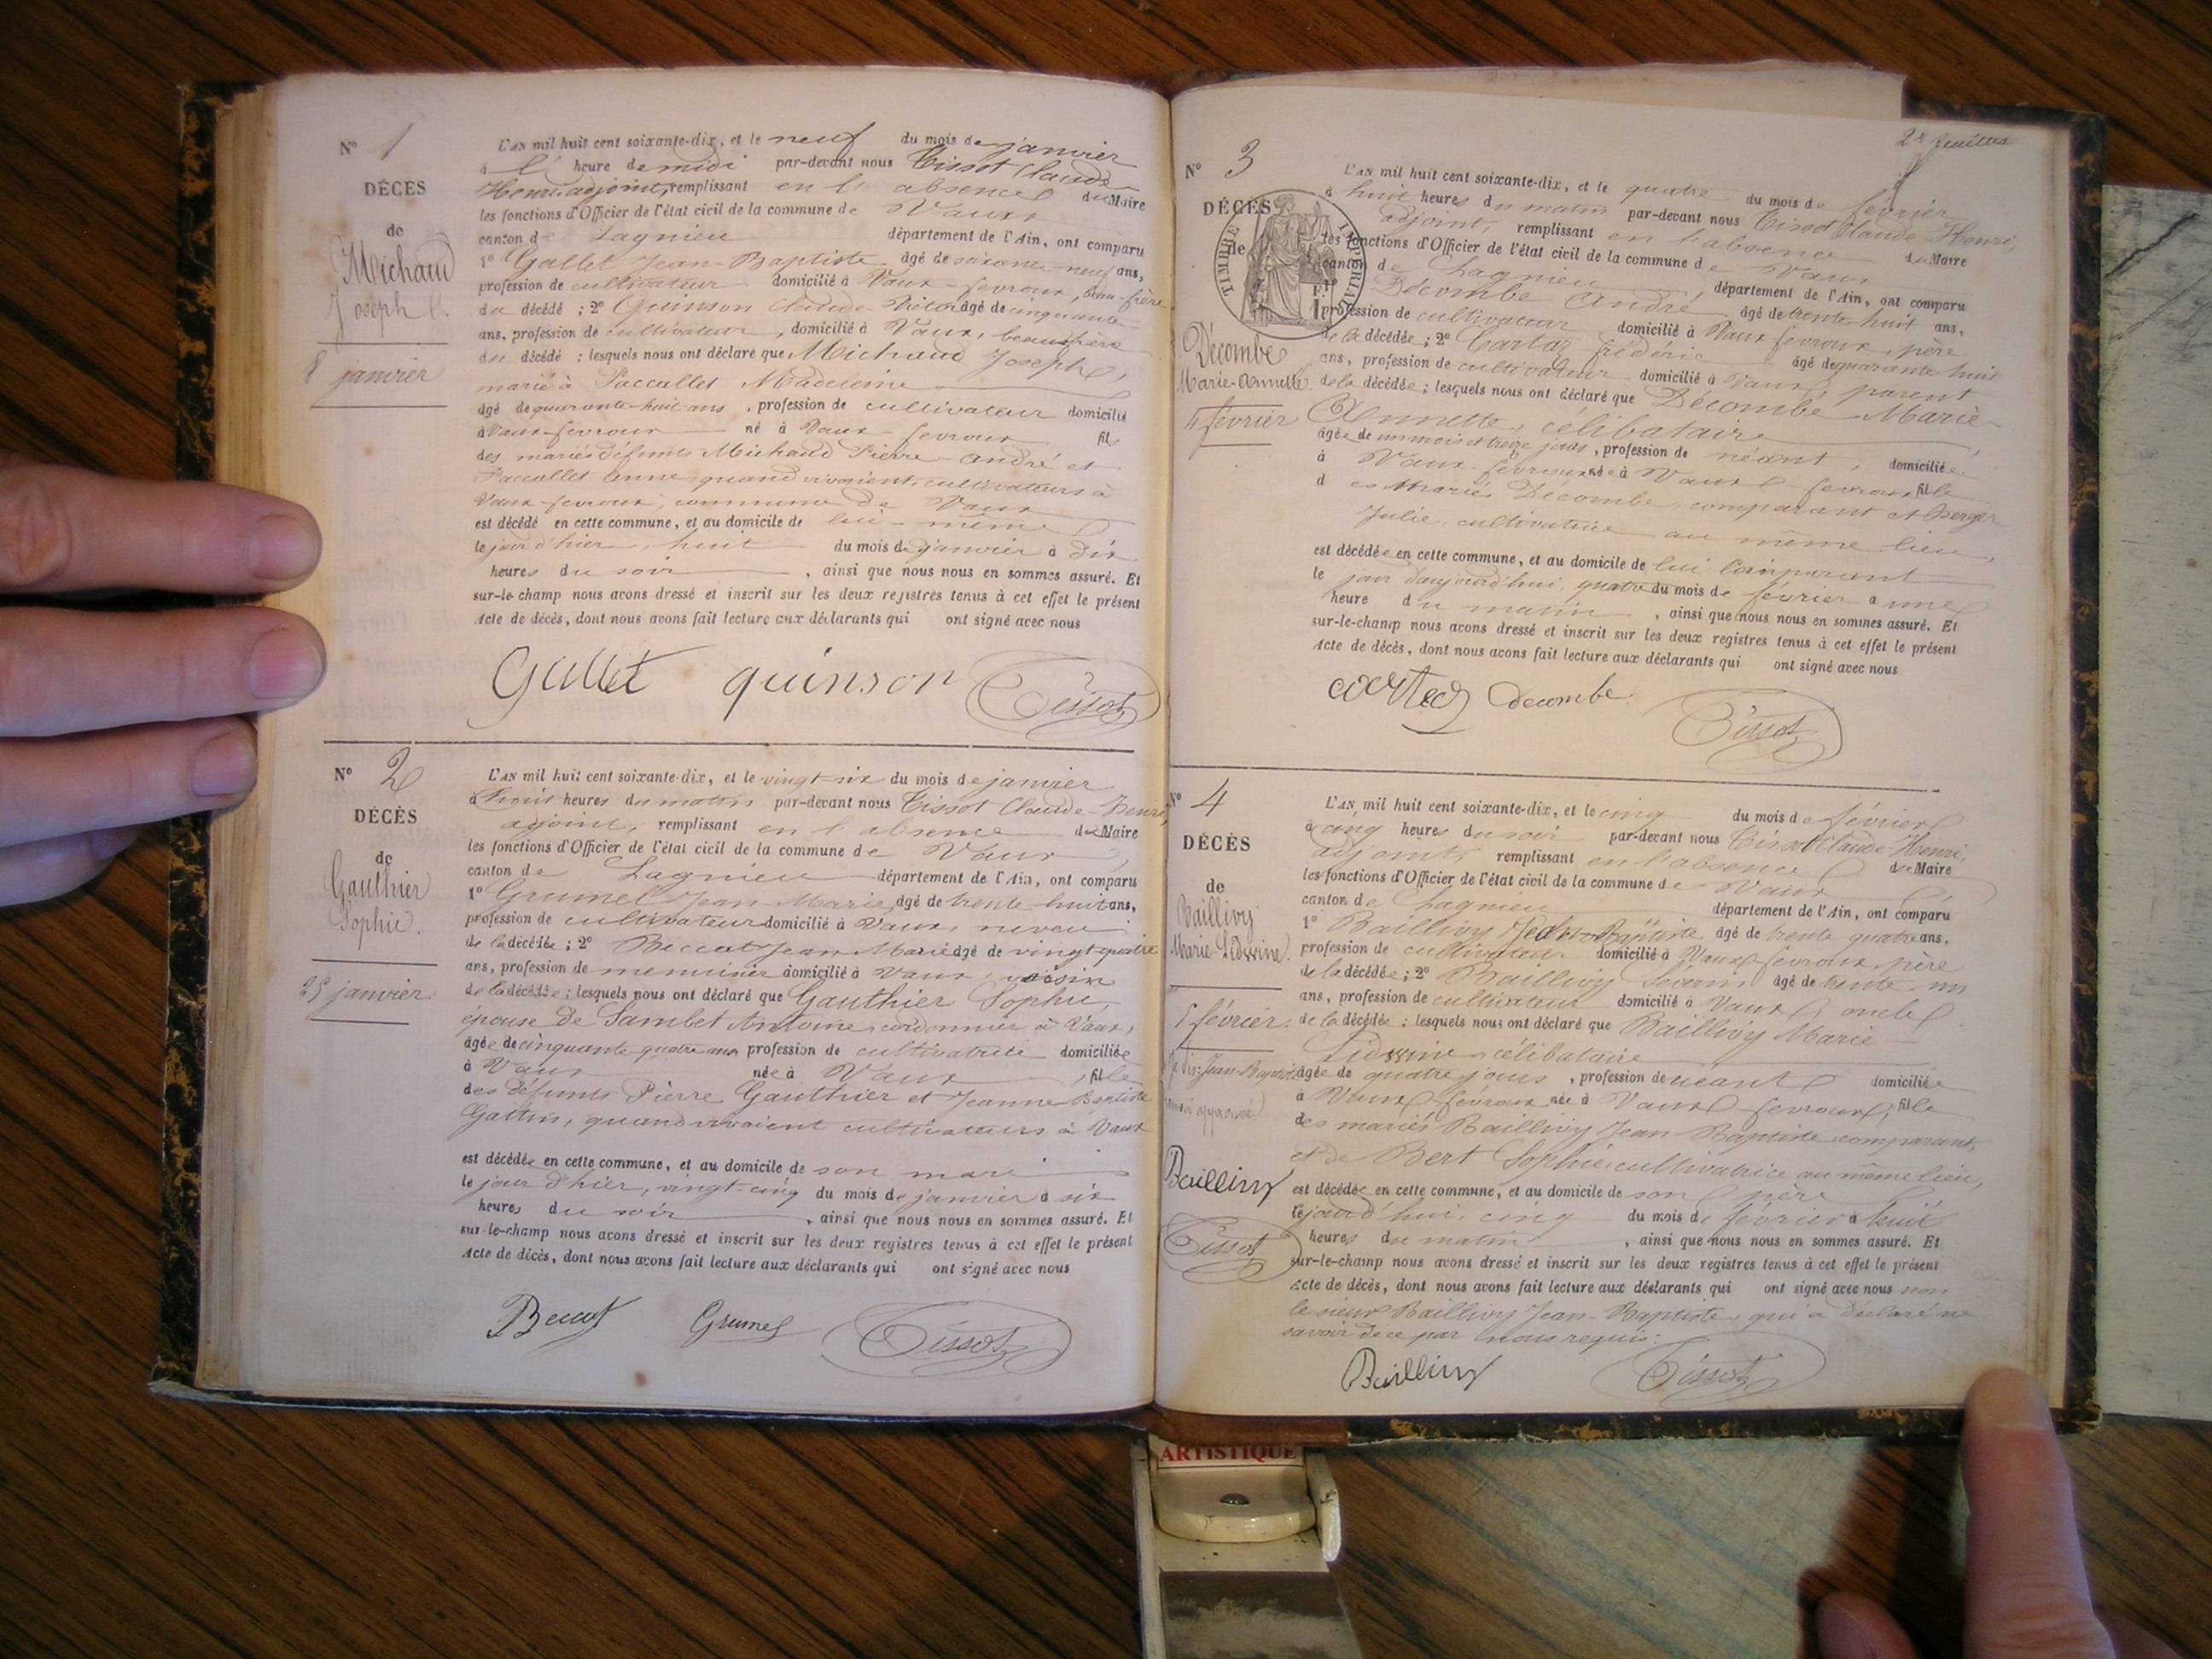 N° 1
DÉCÈS
de
Michaud
Joseph
8 janvier
L'AN mil huit cent soixante-dix, et le neuf du mois de janvier
à l' heure de midi par-devant nous Tissot Claude
Henri adjoint, remplissant en l' absence du Maire
les fonctions d'Officier de l'état civil de la commune de Vaux
canton de Lagnieu département de l'Ain, ont comparu
1° Gallet Jean-Baptiste âgé de soixante-neuf ans,
profession de cultivateur domicilié à Vaux-fevroux, beau-frère
du décédé ; 2° Quinson Claude-Victor âgé de cinquante
ans, profession de cultivateur, domicilié à Vaux, beau-frère
du décédé ; lesquels nous ont déclaré que Michaud Joseph,
marié à Paccallet Madeleine
âgé de quarante-huit ans, profession de cultivateur domicilié
à Vaux-fevroux né à Vaux-fevroux fils
des mariés défunts Michaud Pierre-André et
Paccallet Anne, quand vivaient, cultivateurs à
Vaux-fevroux, commune de Vaux
est décédé en cette commune, et au domicile de lui-même
le jour d'hier, huit du mois de janvier à dix
heures du soir, ainsi que nous nous en sommes assuré. Et
sur-le-champ nous avons dressé et inscrit sur les deux registres tenus à cet effet le présent
Acte de décès, dont nous avons fait lecture aux déclarants qui ont signé avec nous
Gallet quinson Tissot
N° 2
DÉCÈS
de
Gauthier
Sophie.
25 janvier
L'AN mil huit cent soixante-dix, et le vingt-six du mois de janvier
à huit heures du matin par-devant nous Tissot Claude-Henri,
adjoint, remplissant en l'absence du Maire
les fonctions d'Officier de l'état civil de la commune de Vaux
canton de Lagnieu département de l'Ain, ont comparu
1° Grumel Jean-Marie, âgé de trente-huit ans,
profession de cultivateur domicilié à Vaux, neveu
de la décédée ; 2° Beccat Jean-Marie âgé de vingt-quatre
ans, profession de menuisier domicilié à Vaux, voisin
de la décédée ; lesquels nous ont déclaré que Gauthier Sophie,
épouse de Sambet Antoine, cordonnier à Vaux,
âgée de cinquante-quatre ans profession de cultivatrice domiciliée
à Vaux née à Vaux, fille
des défunts Pierre Gauthier et Jeanne-Baptiste
quand vivaient cultivateurs à Vaux
est décédée en cette commune, et au domicile de son mari
le jour d'hier, vingt-cinq du mois de janvier à six
heures du soir, ainsi que nous nous en sommes assuré. Et
sur-le-champ nous avons dressé et inscrit sur les deux registres tenus à cet effet le présent
Acte de décès, dont nous avons fait lecture aux déclarants qui ont signé avec nous
Beccat Grumel Tissot
2e feuillet
N° 3
DÉCÈS
de
TIMBRE IMPÉRIAL
Décombe
Marie-Annette.
4 février
L'AN mil huit cent soixante-dix, et le quatre du mois de février
à huit heures du matin par-devant nous Tissot Claude-Henri,
adjoint, remplissant en l'absence du Maire
les fonctions d'Officier de l'état civil de la commune de Vaux
canton de Lagnieu département de l'Ain, ont comparu
Décombe André âgé de trente-huit ans,
profession de cultivateur domicilié à Vaux fevroux, père
de la décédée ; 2° Cartaz frédéric âgé de quarante-huit
ans, profession de cultivateur domicilié à Vaux, parent
de la décédée ; lesquels nous ont déclaré que Décombe Marie-
Annette, célibataire
âgée de un mois et treize jours, profession de néant, domiciliée
à Vaux-fevroux née à Vaux-fevroux fille
des mariés Décombe, comparant et Berger
Julie, cultivatrice au même lieu,
est décédée en cette commune, et au domicile de lui comparant
le jour d'aujourd'hui, quatre du mois de février à une
heure du matin, ainsi que nous nous en sommes assuré. Et
sur-le-champ nous avons dressé et inscrit sur les deux registres tenus à cet effet le présent
Acte de décès, dont nous avons fait lecture aux déclarants qui ont signé avec nous
Decombe Tissot
N° 4
DÉCÈS
de
Baillivy
Marie-Lidwine.
5 février.
Jean-Baptiste
approuvé
Baillivy
Tissot
L'AN mil huit cent soixante-dix, et le cinq du mois de février
à cinq heures du soir par-devant nous Tissot Claude-Henri,
adjoint, remplissant en l'absence du Maire
les fonctions d'Officier de l'état civil de la commune de Vaux
canton de Lagnieu département de l'Ain, ont comparu
1° Baillivy Jean-Baptiste âgé de trente-quatre ans,
profession de cultivateur domicilié à Vaux fevroux, père
de la décédée ; 2° Baillivy Séverin âgé de trente-un
ans, profession de cultivateur domicilié à Vaux, oncle
de la décédée ; lesquels nous ont déclaré que Baillivy Marie
Lidwine, célibataire
âgée de quatre jours, profession de néant domiciliée
à Vaux-fevroux née à Vaux-fevroux, fille
des mariés Baillivy Jean-Baptiste, comparant,
et de Bert Sophie, cultivatrice au même lieu,
est décédée en cette commune, et au domicile de son père
le jour d'hui, cinq du mois de février à huit
heures du matin, ainsi que nous nous en sommes assuré. Et
sur-le-champ nous avons dressé et inscrit sur les deux registres tenus à cet effet le présent
Acte de décès, dont nous avons fait lecture aux déclarants qui ont signé avec nous non
le sieur Baillivy Jean-Baptiste, qui a déclaré ne
savoir de ce par nous requis.
Baillivy Tissot
ARTISTIQUE